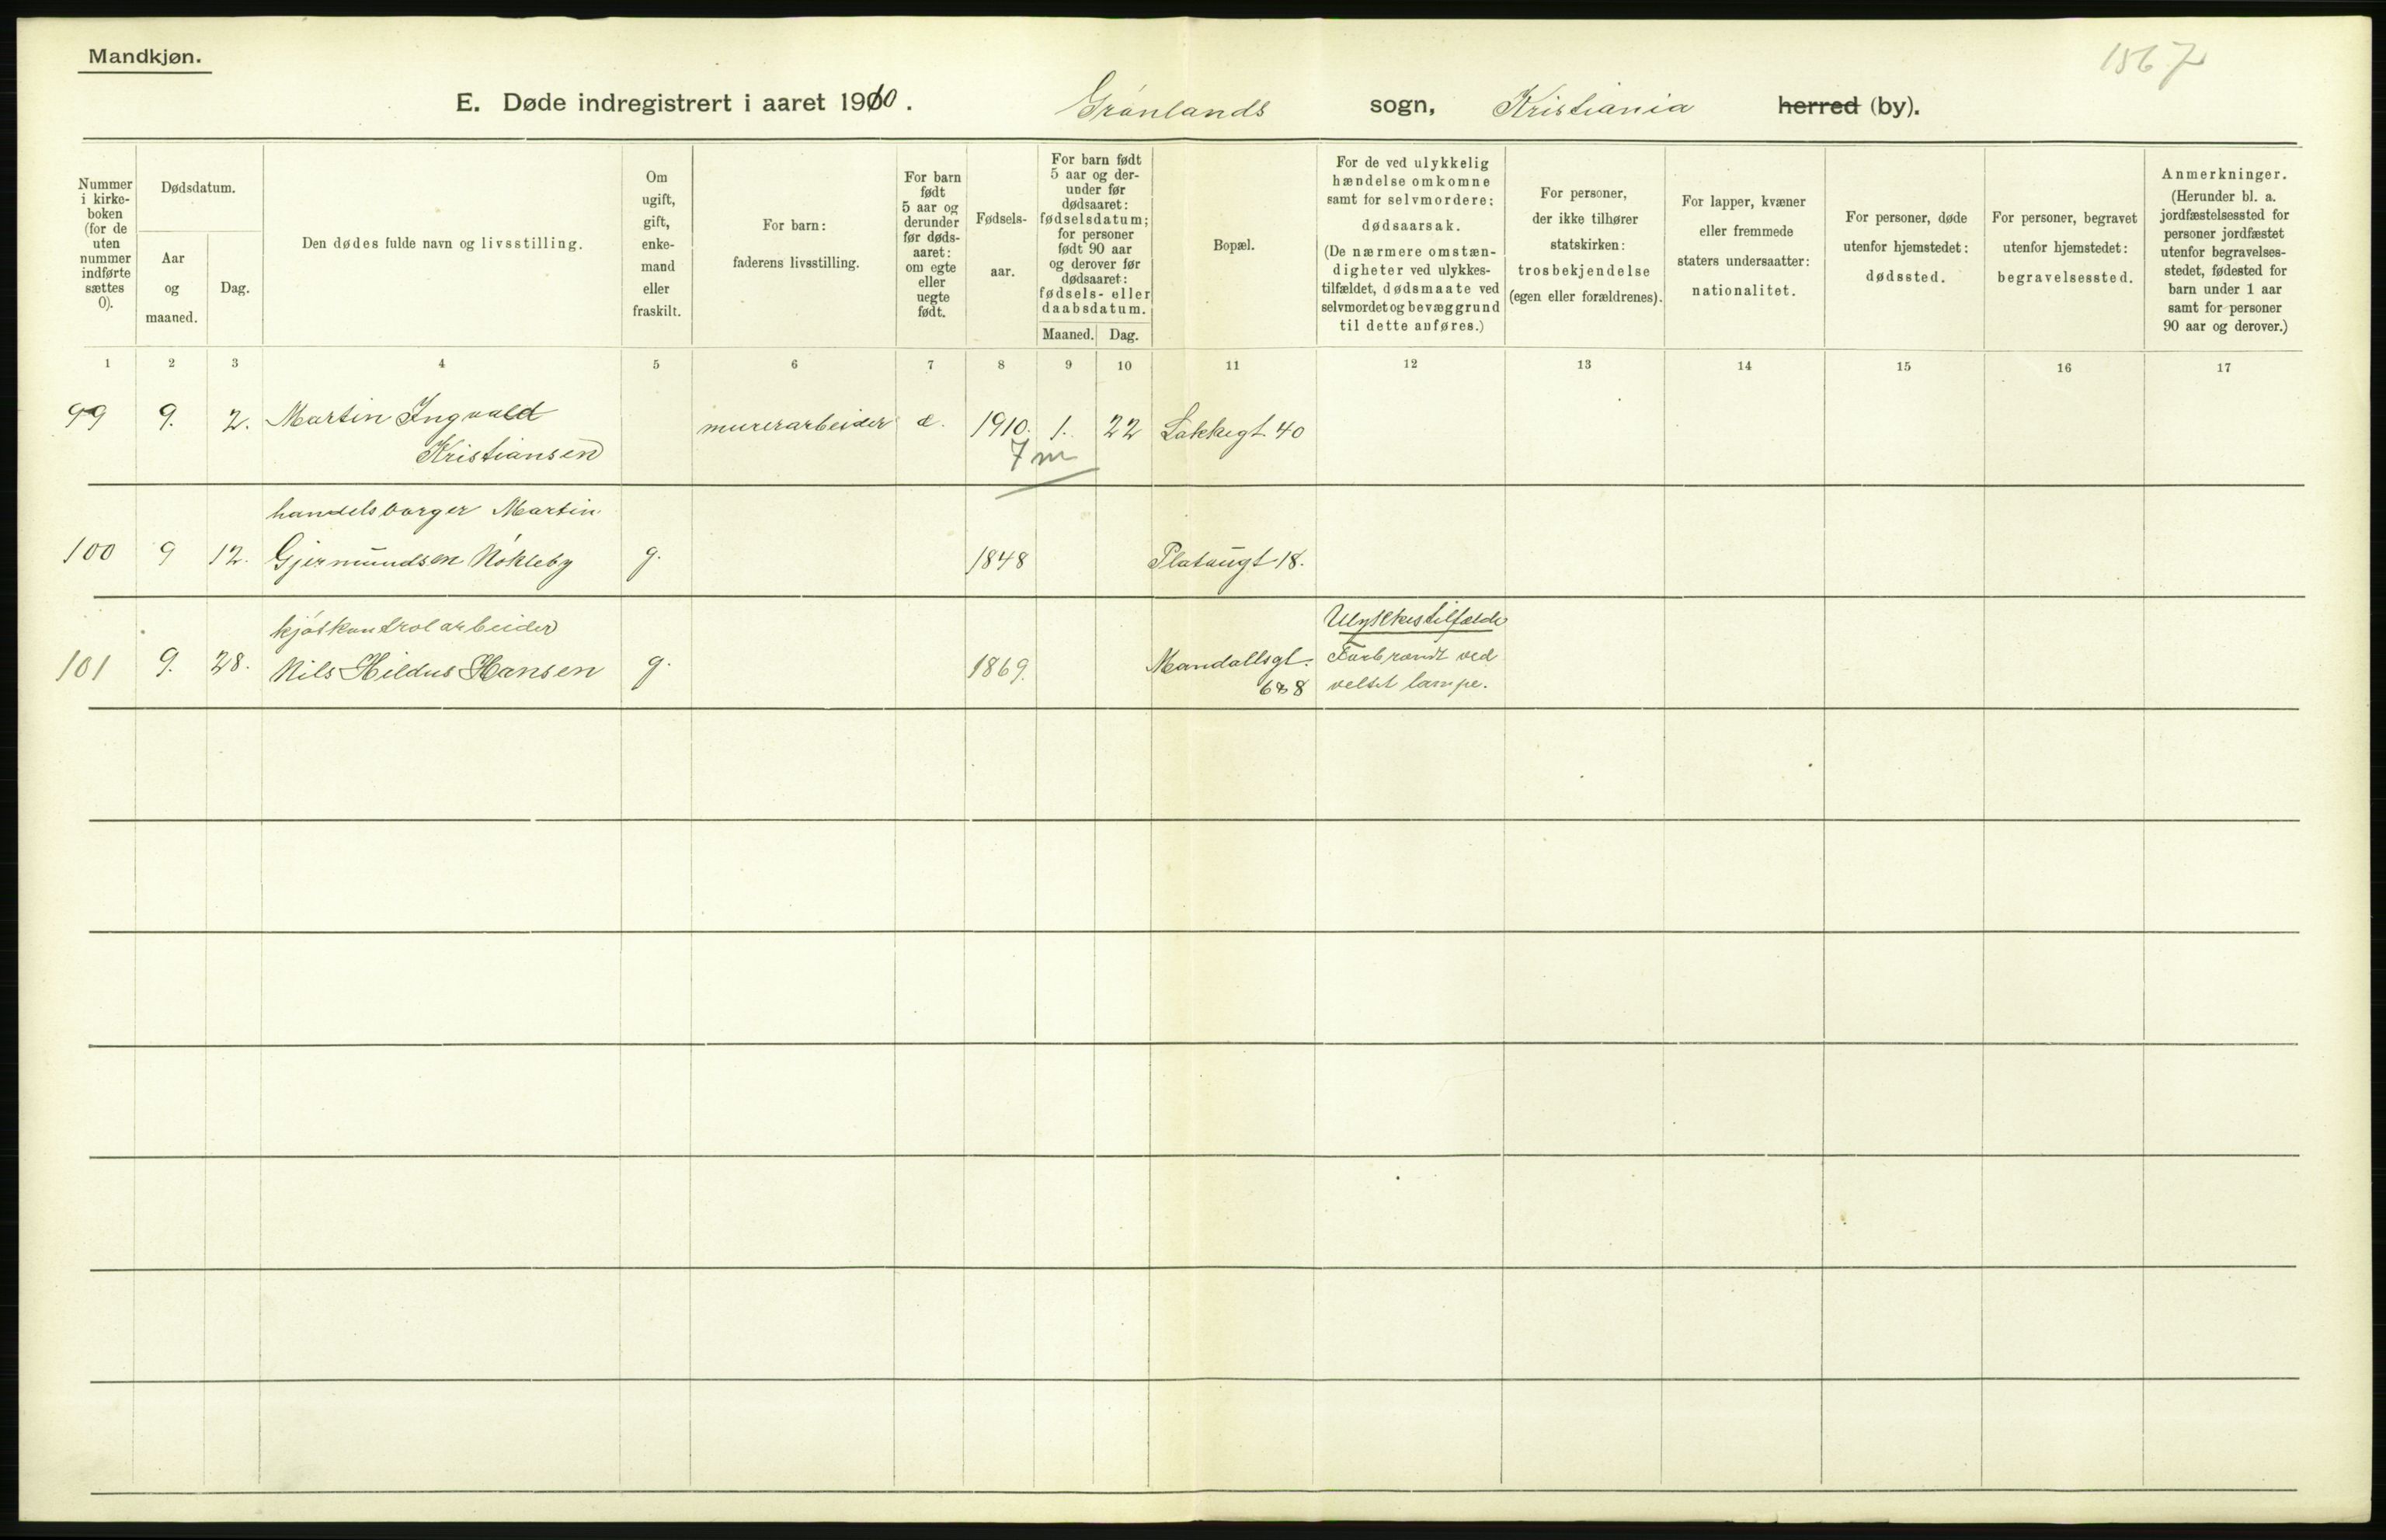 Mandkjøn.
1567
E. Døde indregistrert i aaret 1910. Grønlands sogn, Kristiania herred (by).
Nummer i kirke-boken (for de uten nummer indførte sættes 0).
Dødsdatum.
Aar og maaned.
Dag.
Den dødes fulde navn og livsstilling.
Om ugift, gift, enke-mand eller fraskilt.
For barn: faderens livsstilling.
For barn født 5 aar og derunder før døds-aaret: om egte eller uegte født.
Fødsels-aar.
For barn født 5 aar og der-under før dødsaaret: fødselsdatum; for personer født 90 aar og derover før dødsaaret: fødsels- eller daabsdatum.
Maaned. Dag.
Bopæl.
For de ved ulykkelig hændelse omkomne samt for selvmordere: dødsaarsak. (De nærmere omstæn-digheter ved ulykkes-tilfældet, dødsmaate ved selvmordet og bevæggrund til dette anføres.)
For personer, der ikke tilhører statskirken: trosbekjendelse (egen eller forældrenes).
For lapper, kvæner eller fremmede staters undersaatter: nationalitet.
For personer, døde utenfor hjemstedet: dødssted.
For personer, begravet utenfor hjemstedet: begravelsessted.
Anmerkninger. (Herunder bl. a. jordfæstelsessted for personer jordfæstet utenfor begravelses-stedet, fødested for barn under 1 aar samt for personer 90 aar og derover.)
1 2 3 4 5 6 7 8 9 10 11 12 13 14 15 16 17
99 9. 2. Martin Ingvald murerarbeider e. 1910. 1. 22 Lakkegt. 40
Kristiansen 7 m
handelsborger Martin
100 9 12. Gjermundsen Nökleby g. 1848 Platougt 18.
kjötkontrolarbeider Ulykkestilfælde
101 9. 28. Nils Hildus Hansen g. 1869. Mandallsgt. Forbrændt ved
6&8 veltet lampe.